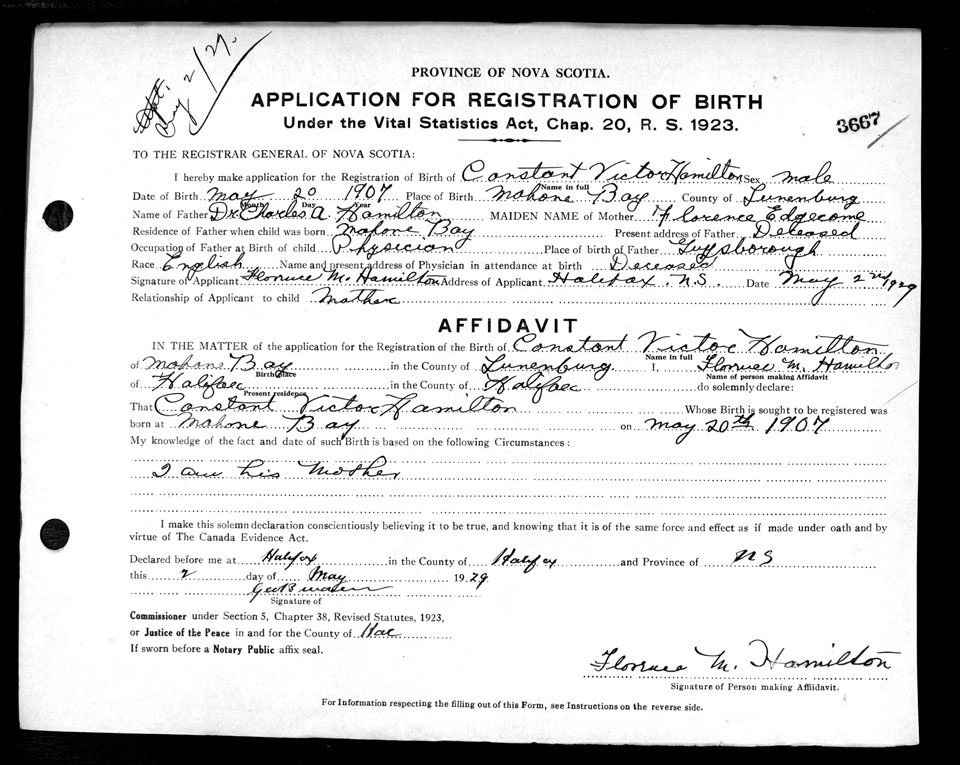 Aug 2/29.
PROVINCE OF NOVA SCOTIA.
APPLICATION FOR REGISTRATION OF BIRTH
Under the Vital Statistics Act, Chap. 20, R. S. 1923.
3667
TO THE REGISTRAR GENERAL OF NOVA SCOTIA:
I hereby make application for the Registration of Birth of Constant Victor Hamilton Sex male
Name in full
Date of Birth May 20 1907 Place of Birth Mahone Bay County of Lunenburg
Month Day Year
Name of Father Dr Charles A. Hamilton MAIDEN NAME of Mother Florence Edgecome
Residence of Father when child was born Mahone Bay Present address of Father Deceased
Occupation of Father at Birth of child Physician Place of birth of Father Guysborough
Race English Name and present address of Physician in attendance at birth Deceased
Signature of Applicant Florence M. Hamilton Address of Applicant Halifax N.S. Date May 2nd/1929
Relationship of Applicant to child Mother
AFFIDAVIT
IN THE MATTER of the application for the Registration of the Birth of Constant Victor Hamilton
Name in full
of Mahone Bay in the County of Lunenburg I, Florence M. Hamilton
Birthplace Name of person making Affidavit
of Halifax in the County of Halifax do solemnly declare:
Present residence
That Constant Victor Hamilton Whose Birth is sought to be registered was
born at Mahone Bay on May 20th 1907
My knowledge of the fact and date of such Birth is based on the following Circumstances:
I am his Mother
I make this solemn declaration conscientiously believing it to be true, and knowing that it is of the same force and effect as if made under oath and by
virtue of The Canada Evidence Act.
Declared before me at Halifax in the County of Halifax and Province of NS
this 2 day of May 1929
Geo B
Signature of
Commissioner under Section 5, Chapter 38, Revised Statutes, 1923,
or Justice of the Peace in and for the County of
If sworn before a Notary Public affix seal.
Florence M. Hamilton
Signature of Person making Affidavit.
For Information respecting the filling out of this Form, see Instructions on the reverse side.